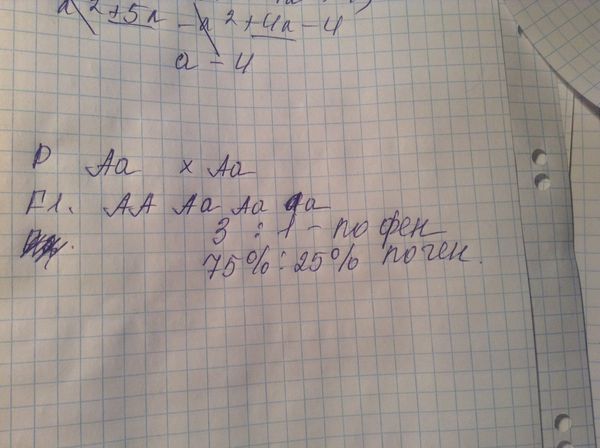 a² + 5a - a² + 4a - 4
a - 4
P Aa x Aa
F1. AA Aa Aa aa
3 : 1 - по фен
75% : 25% по ген.